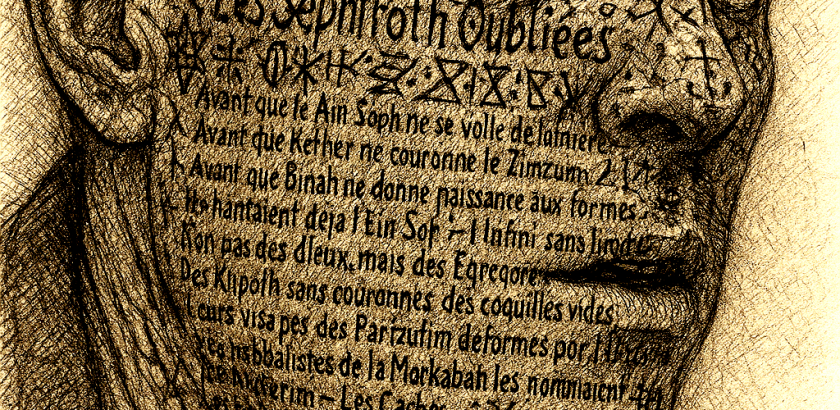 Les Sephiroth Oubliées
Avant que le Ain Soph ne se voile de lumière
Avant que Kether ne couronne le Zimzum
Avant que Binah ne donne naissance aux formes
Ils hantaient déja l'Ein Sof – l Infini sans
Non pas des dieux, mais des Egregore
Des Klipoth sans couronnes des coquilles vides,
Leurs visapes des Partzufim deformes por
kabbalistes de la Morkabah les nommaient
– Les Caches